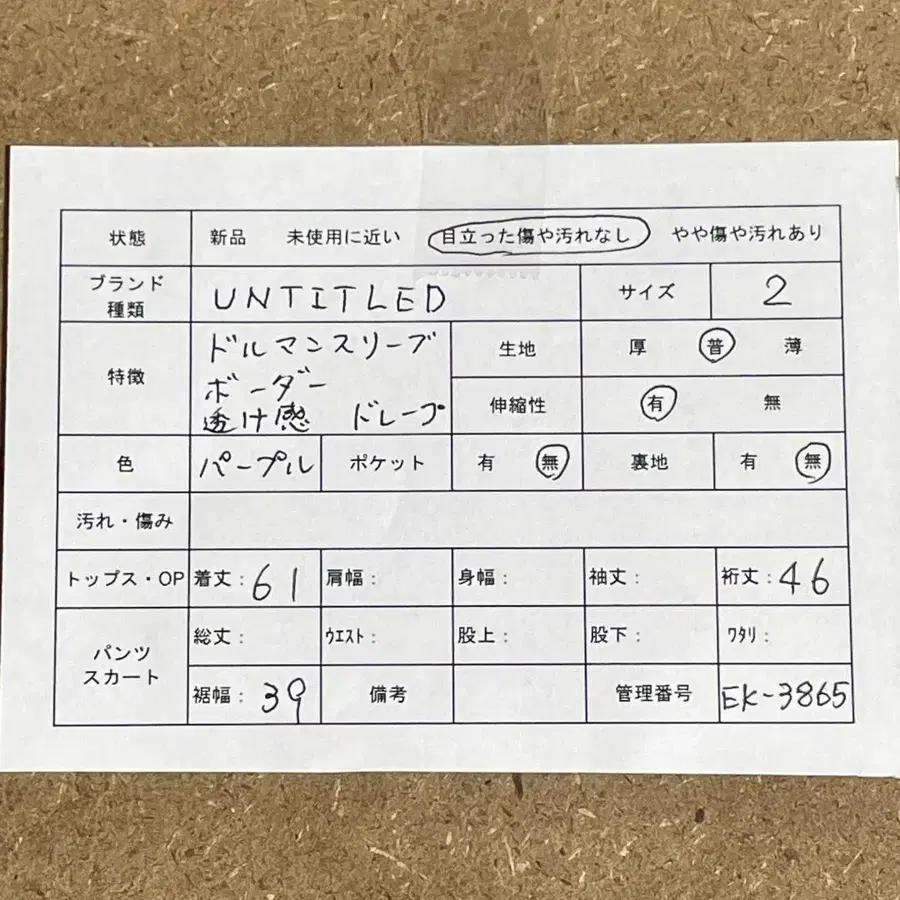 状態 新品 未使用に近い 目立った傷や汚れなし やや傷や汚れあり
ブランド
種類 UNTITLED サイズ 2
特徴 ドルマンスリーブ
ボーダー
透け感 ドレープ
生地 厚 普 薄
伸縮性 有 無
色 パープル ポケット 有 無 裏地 有 無
汚れ・傷み
トップス・OP 着丈: 61 肩幅: 身幅: 袖丈: 裄丈: 46
パンツ
スカート
総丈: ウエスト: 股上: 股下: ワタリ:
裾幅: 39 備考 管理番号 EK-3865